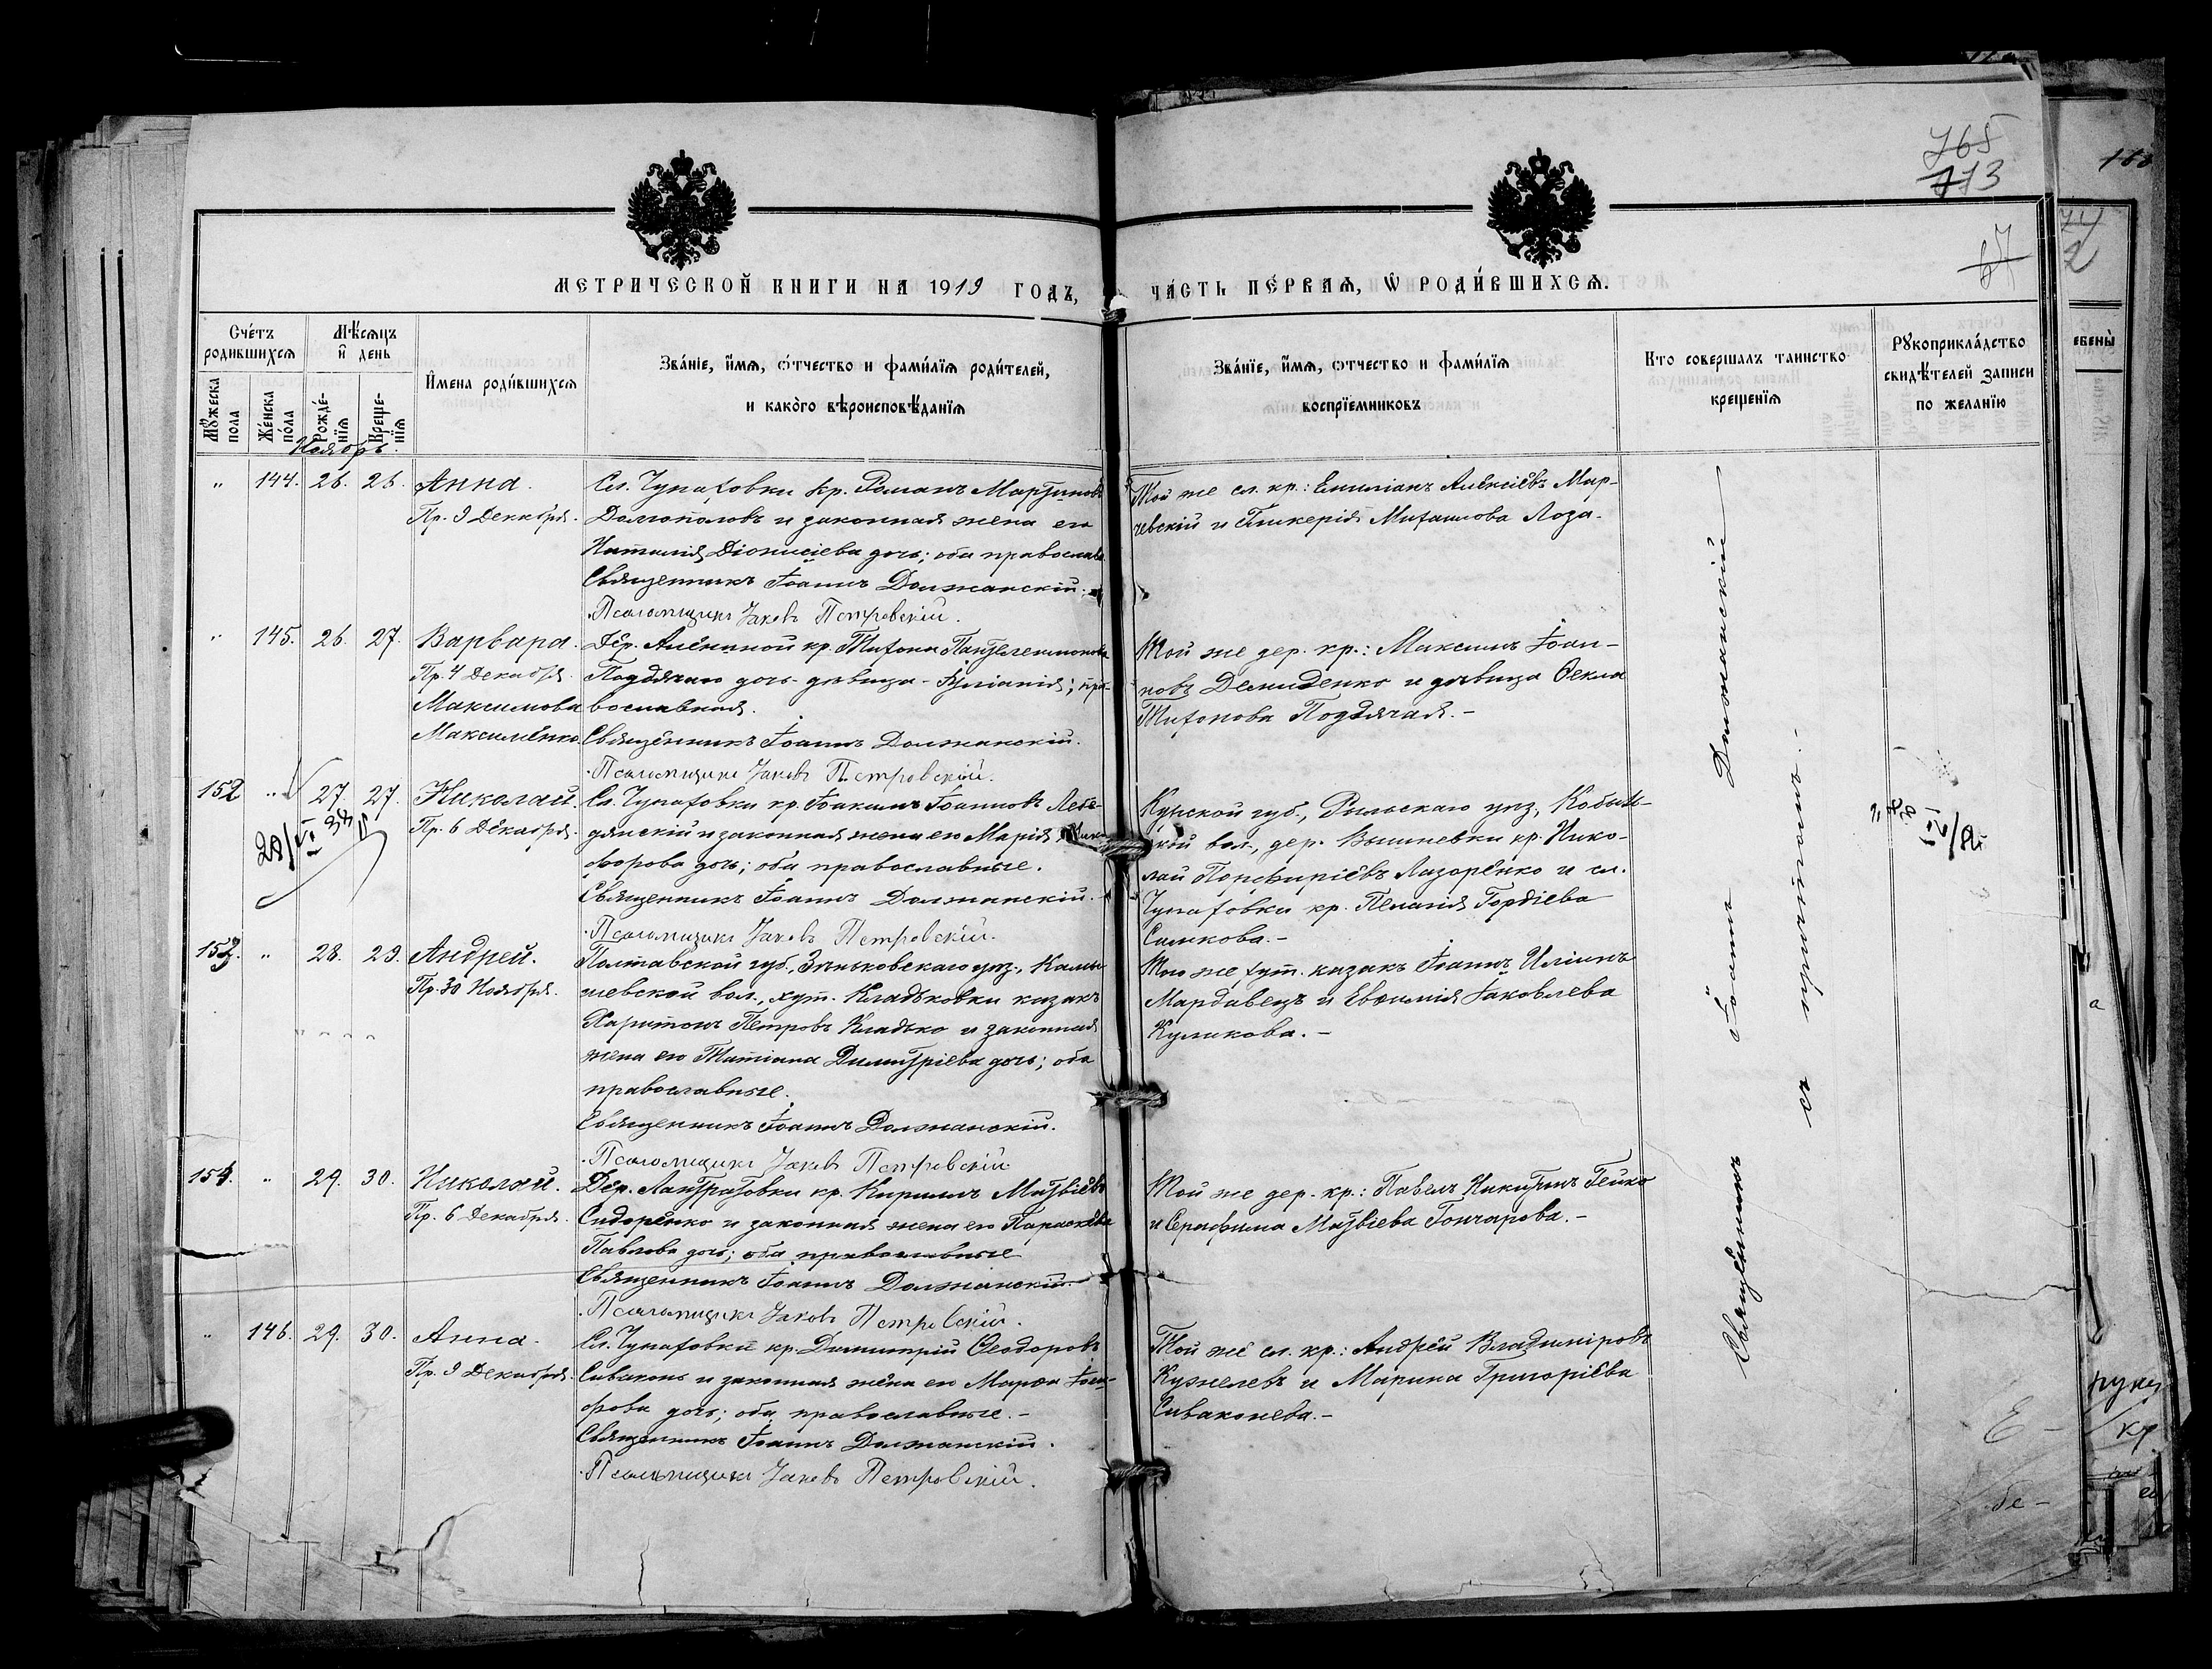 765
113
67
МЕТРИЧЕСКОЙ КНИГИ НА 1919 ГОДЪ,
ЧАСТЬ ПЕРВАЯ, Ѡ РОДИВШИХСЯ.
Счетъ родившихся
Мужеска пола
Женска пола
Мѣсяцъ и день
Рожденія
Крещенія
Имена родившихся
Званіе, имя, отчество и фамилія родителей,
и какого вѣроисповѣданія
Званіе, имя, отчество и фамилія
воспріемниковъ
Кто совершалъ таинство
крещенія
Рукоприкладство
свидѣтелей записи
по желанію
Ноябрь.
„ 144. 26. 26. Анна.
Пр. 9 Декабря.
Сл. Чупаховки кр. Романъ Мартиновъ
Долгополовъ и законная жена его
Наталія Діонисіева дочь; оба православн
Священникъ Іоаннъ Должанскій.
Псаломщикъ Іаковъ Петровскій.
Той же сл. кр.: Емиліанъ Алексіевъ Мар-
чевскій и Гликерія Михаилова Лоза.
„ 145. 26. 27. Варвара.
Пр. 4 Декабря.
Максимова
Максименко.
Дер. Алениной кр. Тихона Пантелеимонова
Поддячаго дочь-дѣвица-Іуліанія; пра-
вославная.
Священникъ Іоаннъ Должанскій.
Псаломщикъ Іаковъ Петровскій.
Той же дер. кр.: Максимъ Іоан-
новъ Демиденко и дѣвица Ѳекла
Тихонова Поддячая.-
152 „ 27. 27. Николай.
Пр. 6 Декабря.
Сл. Чупаховки кр. Іоакимъ Іоанновъ Лебе-
дянскій и законная жена его Марія Ники
форова дочь; оба православные.
Священникъ Іоаннъ Должанскій.
Псаломщикъ Іаковъ Петровскій.
Курской губ., Рыльскаго уѣз., Кобыль-
ской вол., дер. Вишневки кр. Нико-
лай Порфиріевъ Лазоренко и сл.
Чупаховки кр. Пелагія Гордіева
Саликова.-
153. „ 28. 29. Андрей.
Пр. 30 Ноября.
Полтавской губ., Зѣньковскаго уѣз., Камы-
шевской вол., хут. Кладьковки казакъ
Харитонъ Петровъ Кладько и законная
жена его Татіана Димитріева дочь; оба
православные.
Священникъ Іоаннъ Должанскій.
Псаломщикъ Іаковъ Петровскій.
Того же хут. казакъ Іоаннъ Иліинъ
Мардавецъ и Евѳимія Іаковлева
Куликова.-
154. „ 29. 30. Николай.
Пр. 6 Декабря.
Дер. Лантратовки кр. Кириллъ Матвіевъ
Сидоренко и законная жена его Параскева
Павлова дочь; оба православные
Священникъ Іоаннъ Должанскій.
Псаломщикъ Іаковъ Петровскій.
Той же дер. кр.: Павелъ Никитинъ Гейко
и Серафима Матвіева Гончарова.-
„ 146. 29. 30. Анна.
Пр. 9 Декабря.
Сл. Чупаховки кр. Димитрій Ѳеодоровъ
Сиваконь и законная жена его Марѳа
дочь; оба православные.-
Священникъ Іоаннъ Должанскій.
Псаломщикъ Іаковъ Петровскій.
Той же сл. кр.: Андрей Владиміровъ
Кужелевъ и Марина Григоріева
Сиваконева.-
Священникъ Іоаннъ Должанскій
съ причтомъ.-